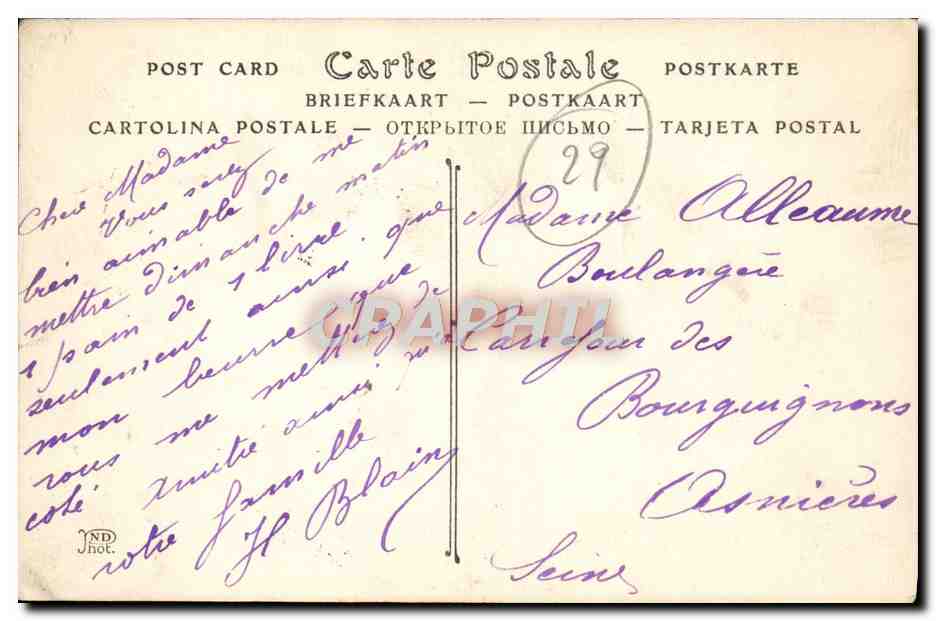 POST CARD Carte Postale POSTKARTE
BRIEFKAART — POSTKAART
CARTOLINA POSTALE — ОТКРЫТОЕ ПИСЬМО — TARJETA POSTAL
29
Chère Madame
Vous serez
bien aimable de me
mettre dimanche matin
1 pain de 1 livre.
seulement ainsi que
mon beurre que
vous me mettrez de
coté Amitié ainsi qu'à
votre famille
H Blain
ND
Phot.
Madame Alleaume
Boulangère
Carrefour des
Bourguignons
Asnières
Seine
CRAPHIL